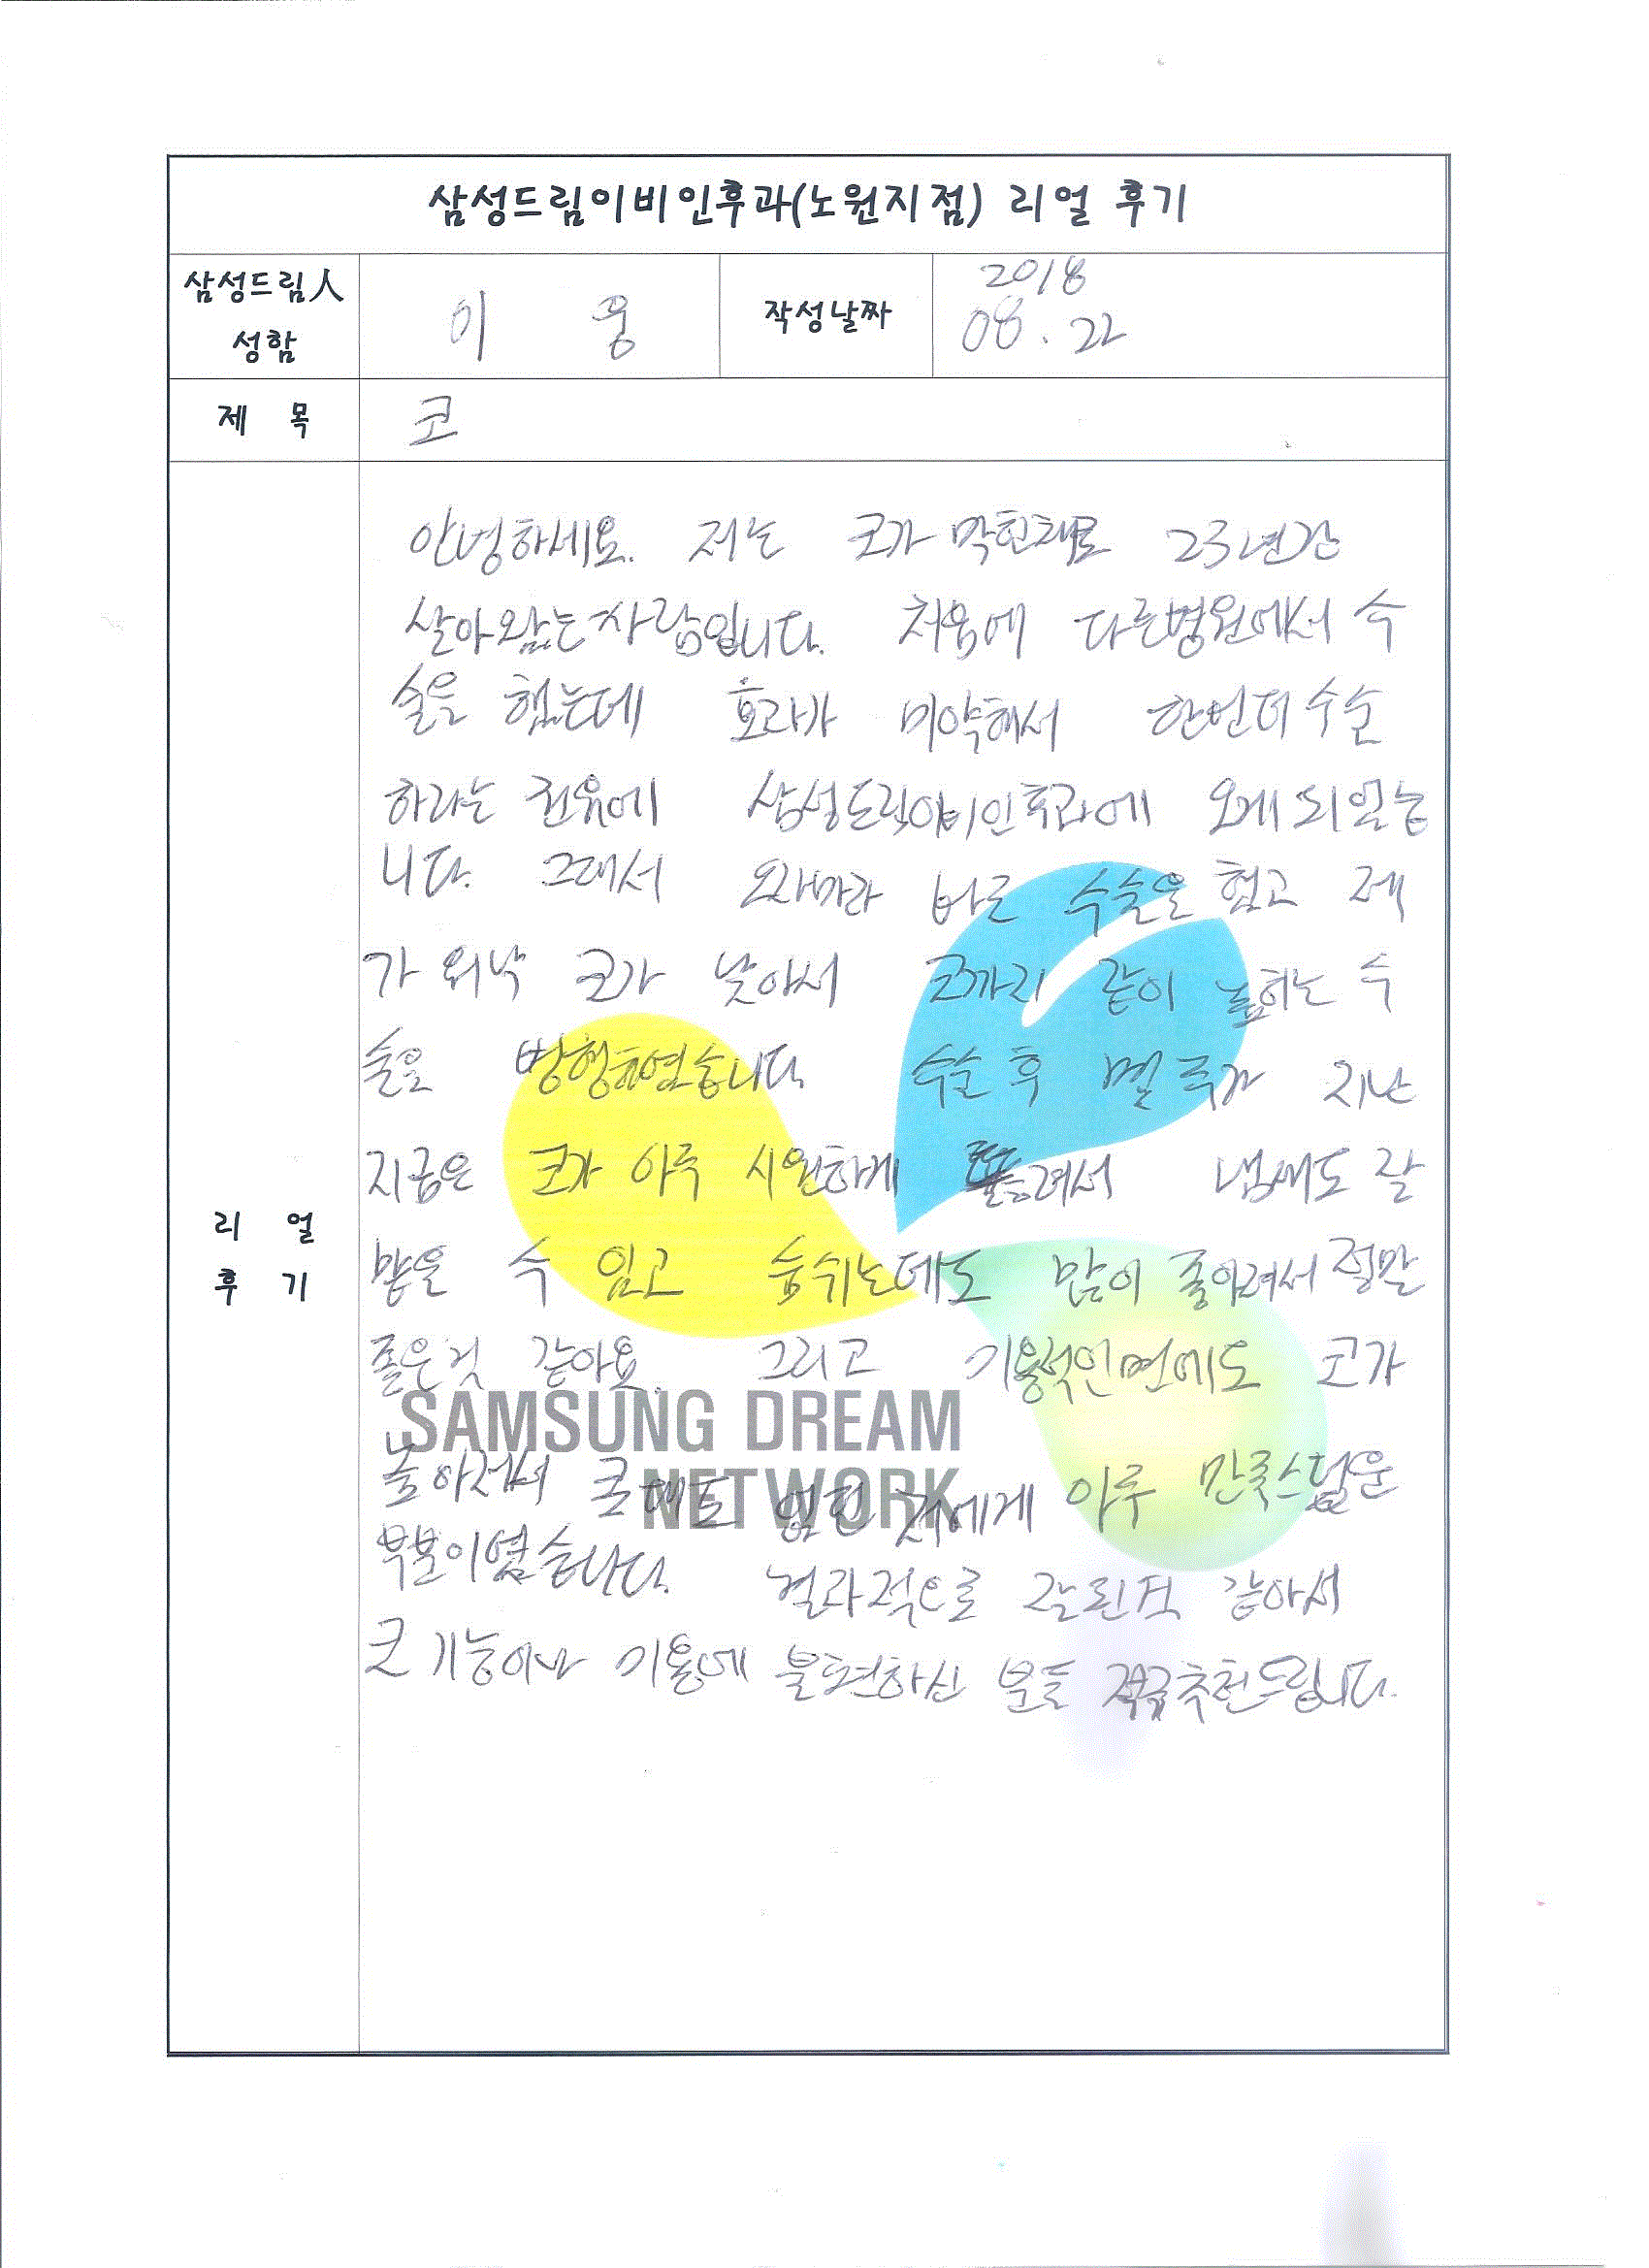 삼성드림이비인후과(노원지점) 리얼 후기
삼성드림人
성함
이 웅
작성날짜
2018
08.22
제 목
코
안녕하세요. 저는 코가 막힌채로 23년간
살아왔는 사람입니다. 처음에 다른병원에서 수
술을 했는데 효과가 미약해서 한번더 수술
하라는 권유에 삼성드림이비인후과에 오게 되었습
니다. 그래서 오자마자 바로 수술을 했고 제
가 워낙 코가 낮아서 코까지 같이 높히는 수
술을 병행하였습니다. 수술 후 몇 주가 지난
지금은 코가 아주 시원하게 뚫려서 냄새도 잘
맡을 수 있고 숨쉬는데도 많이 좋아져서 정말
좋은것 같아요. 그리고 미용적인면에도 코가
높아져서 콧대도 없던 저에게 아주 만족스러운
부분이였습니다. 결과적으로 잘된것 같아서
코 기능이나 미용에 불편하신 분들 적극추천드립니다.
리 얼
후 기
SAMSUNG DREAM
NETWORK